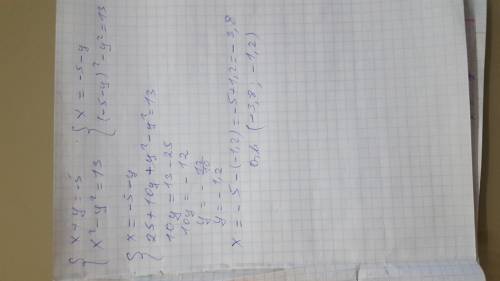 { x+y=-5   { x = -5-y
{ x²-y²=13   { (-5-y)²-y²=13
{ x=-5-y
{ 25+10y+y²-y²=13
10y=13-25
10y=-12
y=-12/10
y=-1,2
x=-5-(-1,2)=-5+1,2=-3,8
Отв (-3,8; -1,2)